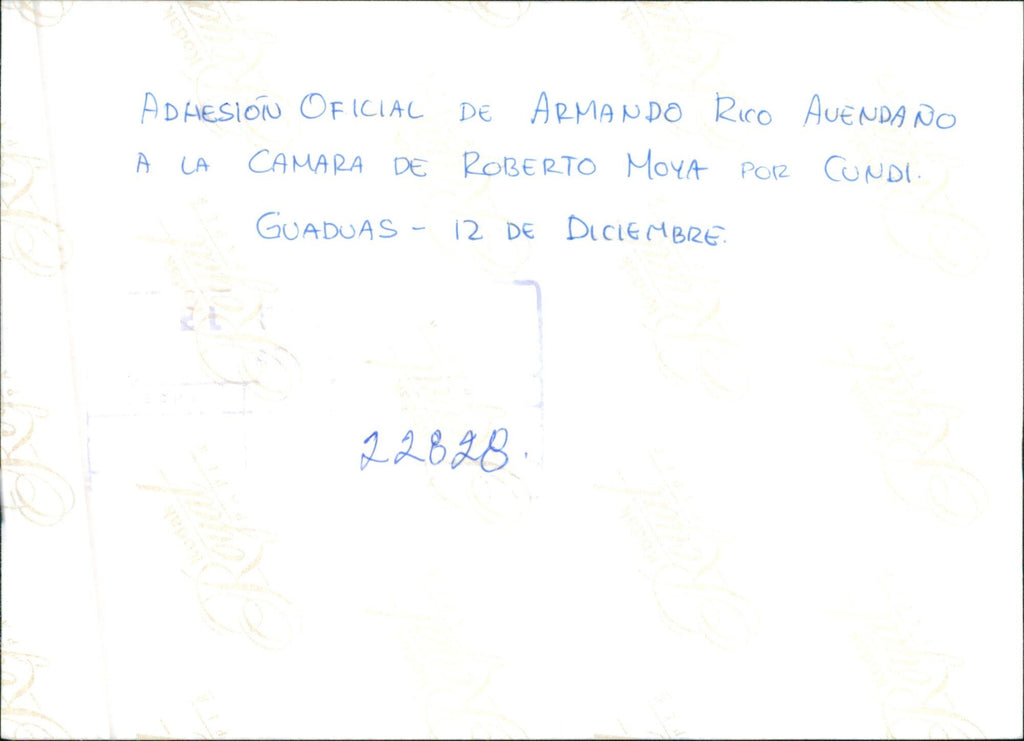 ADHESIÓN OFICIAL DE ARMANDO RICO AVENDAÑO
A LA CAMARA DE ROBERTO MOYA POR CUNDI.
GUADUAS - 12 DE DICIEMBRE.
22828.